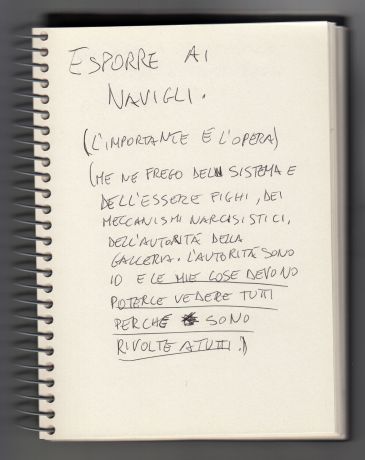 ESPORRE AI
NAVIGLI.
(L'IMPORTANTE È L'OPERA)
(ME NE FREGO DEL SISTEMA E
DELL'ESSERE FIGHI, DEI
MECCANISMI NARCISISTICI,
DELL'AUTORITÀ DELLA
GALLERIA. L'AUTORITÀ SONO
IO E LE MIE COSE DEVONO
POTERLE VEDERE TUTTI
PERCHÉ SONO
RIVOLTE A TUTTI!)